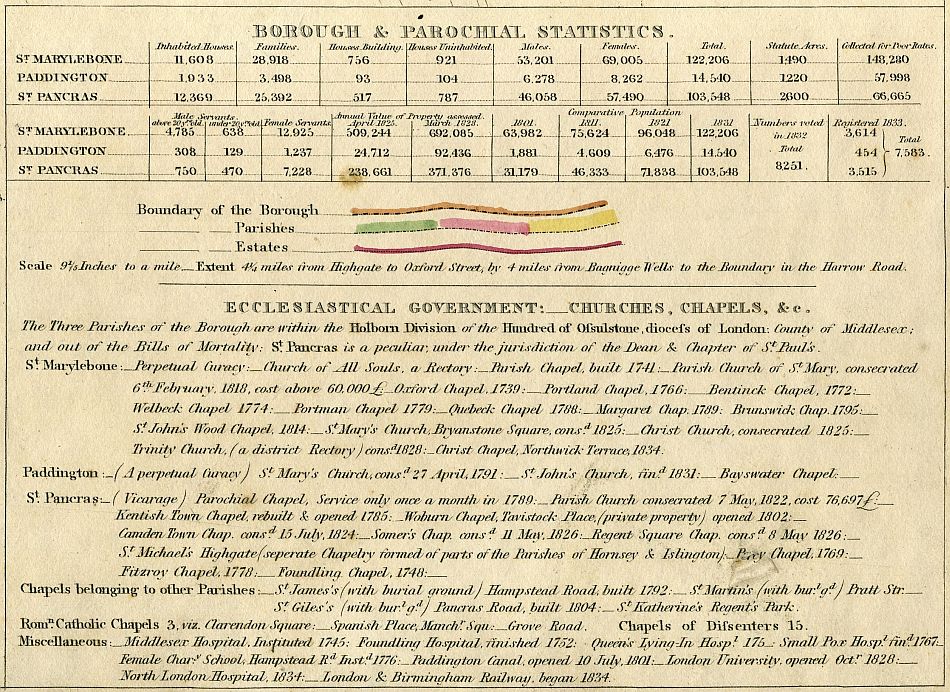 BOROUGH & PAROCHIAL STATISTICS.
Inhabited Houses. Families. Houses Building. Houses Uninhabited. Males. Females. Total. Statute Acres. Collected for Poor Rates.
St. MARYLEBONE 11,608 28,918 756 921 53,201 69,005 122,206 1490 148,280
PADDINGTON 1,933 3,498 93 104 6,278 8,262 14,540 1220 57,998
St. PANCRAS 12,369 25,392 517 787 46,058 57,490 103,548 2600 66,665
Male Servants. Annual Value of Property assessed. Comparative Population
above 20 yrs. old. under 20 yrs. old. Female Servants. April 1825. March 1828. 1801. 1811. 1821 1831 Numbers voted Registered 1833.
St. MARYLEBONE 4,785 638 12,925 509,244 692,085 63,982 75,624 96,048 122,206 in 1832 3,614 Total
PADDINGTON 308 129 1,237 24,712 92,436 1,881 4,609 6,476 14,540 Total 454 7,583.
St. PANCRAS 750 470 7,228 238,661 371,376 31,179 46,333 71,838 103,548 8251. 3,515
Boundary of the Borough
Parishes
Estates
Scale 9⅔ Inches to a mile Extent 4¼ miles from Highgate to Oxford Street, by 4 miles from Bagnigge Wells to the Boundary in the Harrow Road.
ECCLESIASTICAL GOVERNMENT: CHURCHES, CHAPELS, &c.
The Three Parishes of the Borough are within the Holborn Division of the Hundred of Ofsulstone, diocefs of London: County of Middlesex;
and out of the Bills of Mortality: St. Pancras is a peculiar, under the jurisdiction of the Dean & Chapter of St. Paul's.
St. Marylebone: Perpetual Curacy: Church of All Souls, a Rectory: Parish Chapel, built 1741: Parish Church of St. Mary, consecrated
6th February, 1818, cost above 60,000£: Oxford Chapel, 1739: Portland Chapel, 1766: Bentinck Chapel, 1772:
Welbeck Chapel 1774: Portman Chapel 1779: Quebeck Chapel 1788: Margaret Chap. 1789: Brunswick Chap. 1795:
St. John's Wood Chapel, 1814: St. Mary's Church, Bryanstone Square, consd. 1825: Christ Church, consecrated 1825:
Trinity Church, (a district Rectory) consd. 1828: Christ Chapel, Northwick Terrace, 1834.
Paddington: (A perpetual Curacy) St. Mary's Church, consd. 27 April, 1791: St. John's Church, find. 1831: Bayswater Chapel:
St. Pancras: (Vicarage) Parochial Chapel, Service only once a month in 1789: Parish Church consecrated 7 May, 1822, cost 76,697£:
Kentish Town Chapel, rebuilt & opened 1785: Woburn Chapel, Tavistock Place, (private property) opened 1802:
Camden Town Chap. consd. 15 July, 1824: Somer's Chap. consd. 11 May, 1826: Regent Square Chap. consd. 8 May 1826:
St. Michael's Highgate (seperate Chapelry formed of parts of the Parishes of Hornsey & Islington): Percy Chapel, 1769:
Fitzroy Chapel, 1778: Foundling Chapel, 1748:
Chapels belonging to other Parishes: St. James's (with burial ground) Hampstead Road, built 1792: St. Martin's (with burl. gd.) Pratt Str.
St. Giles's (with burl. gd.) Pancras Road, built 1804: St. Katherine's Regent's Park.
Romn. Catholic Chapels 3, viz. Clarendon Square: Spanish Place, Manchr. Squ: Grove Road. Chapels of Difsenters 15.
Miscellaneous: Middlesex Hospital, Instituted 1745: Foundling Hospital, finished 1752: Queen's Lying-In Hospl. 175 : Small Pox Hospl. find. 1767:
Female Chary. School, Hampstead Rd. Instd. 1776: Paddington Canal, opened 10 July, 1801: London University, opened Octr. 1828:
North London Hospital, 1834: London & Birmingham Railway, began 1834.